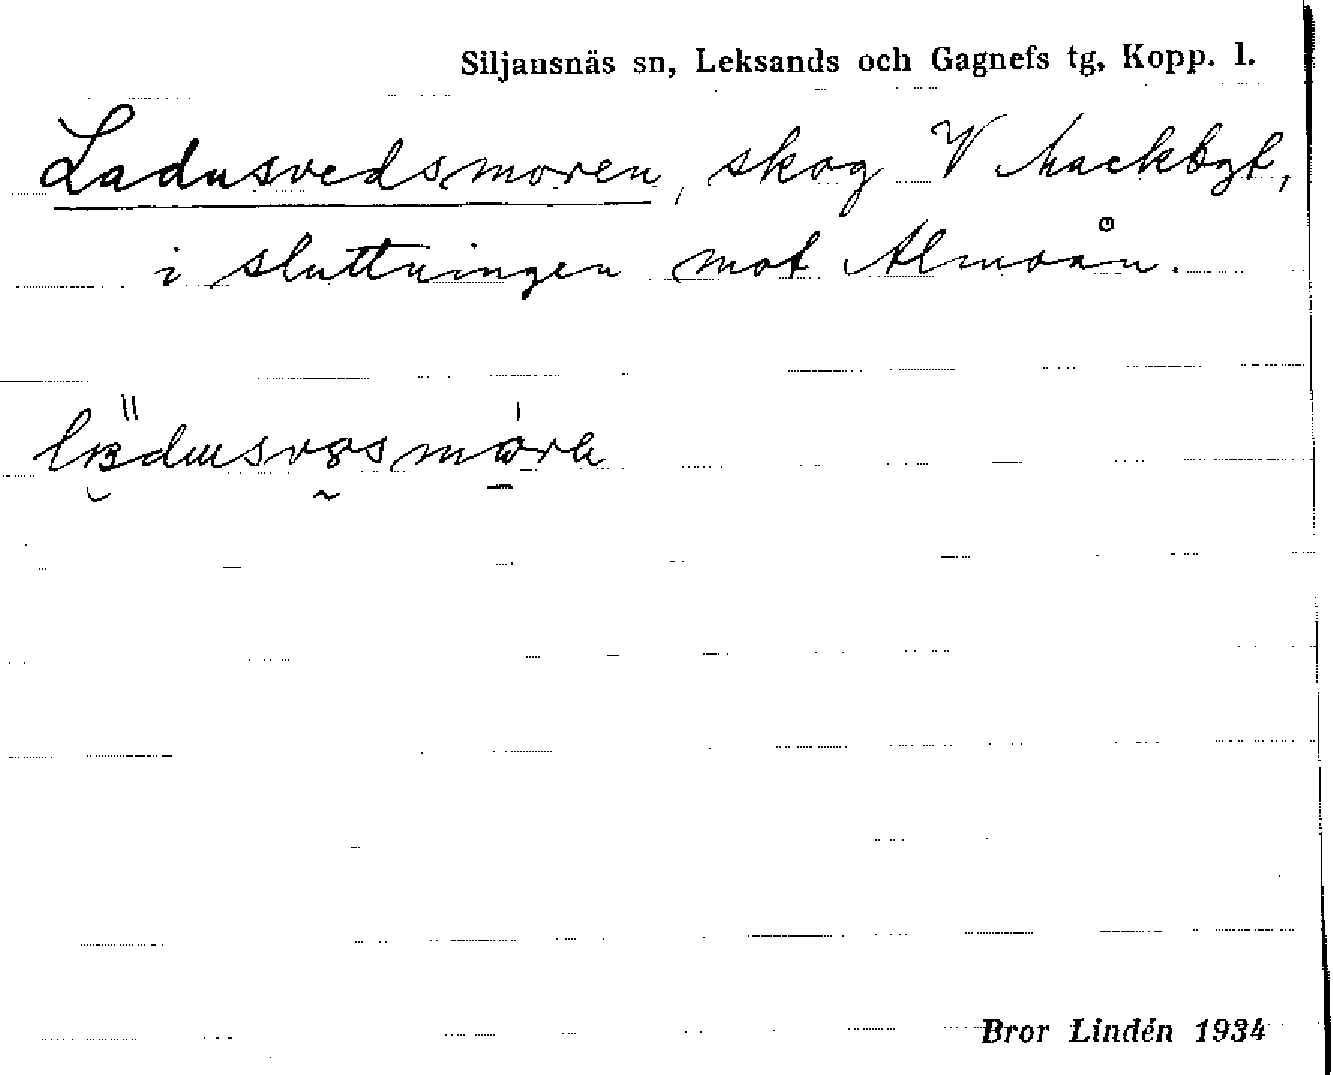 Siljansnäs sn, Leksands och Gagnefs tg, Kopp. l.
Ladusvedsmoren, skog V Mackbyt,
i sluttningen mot Almoån.
Bror Lindén 1934